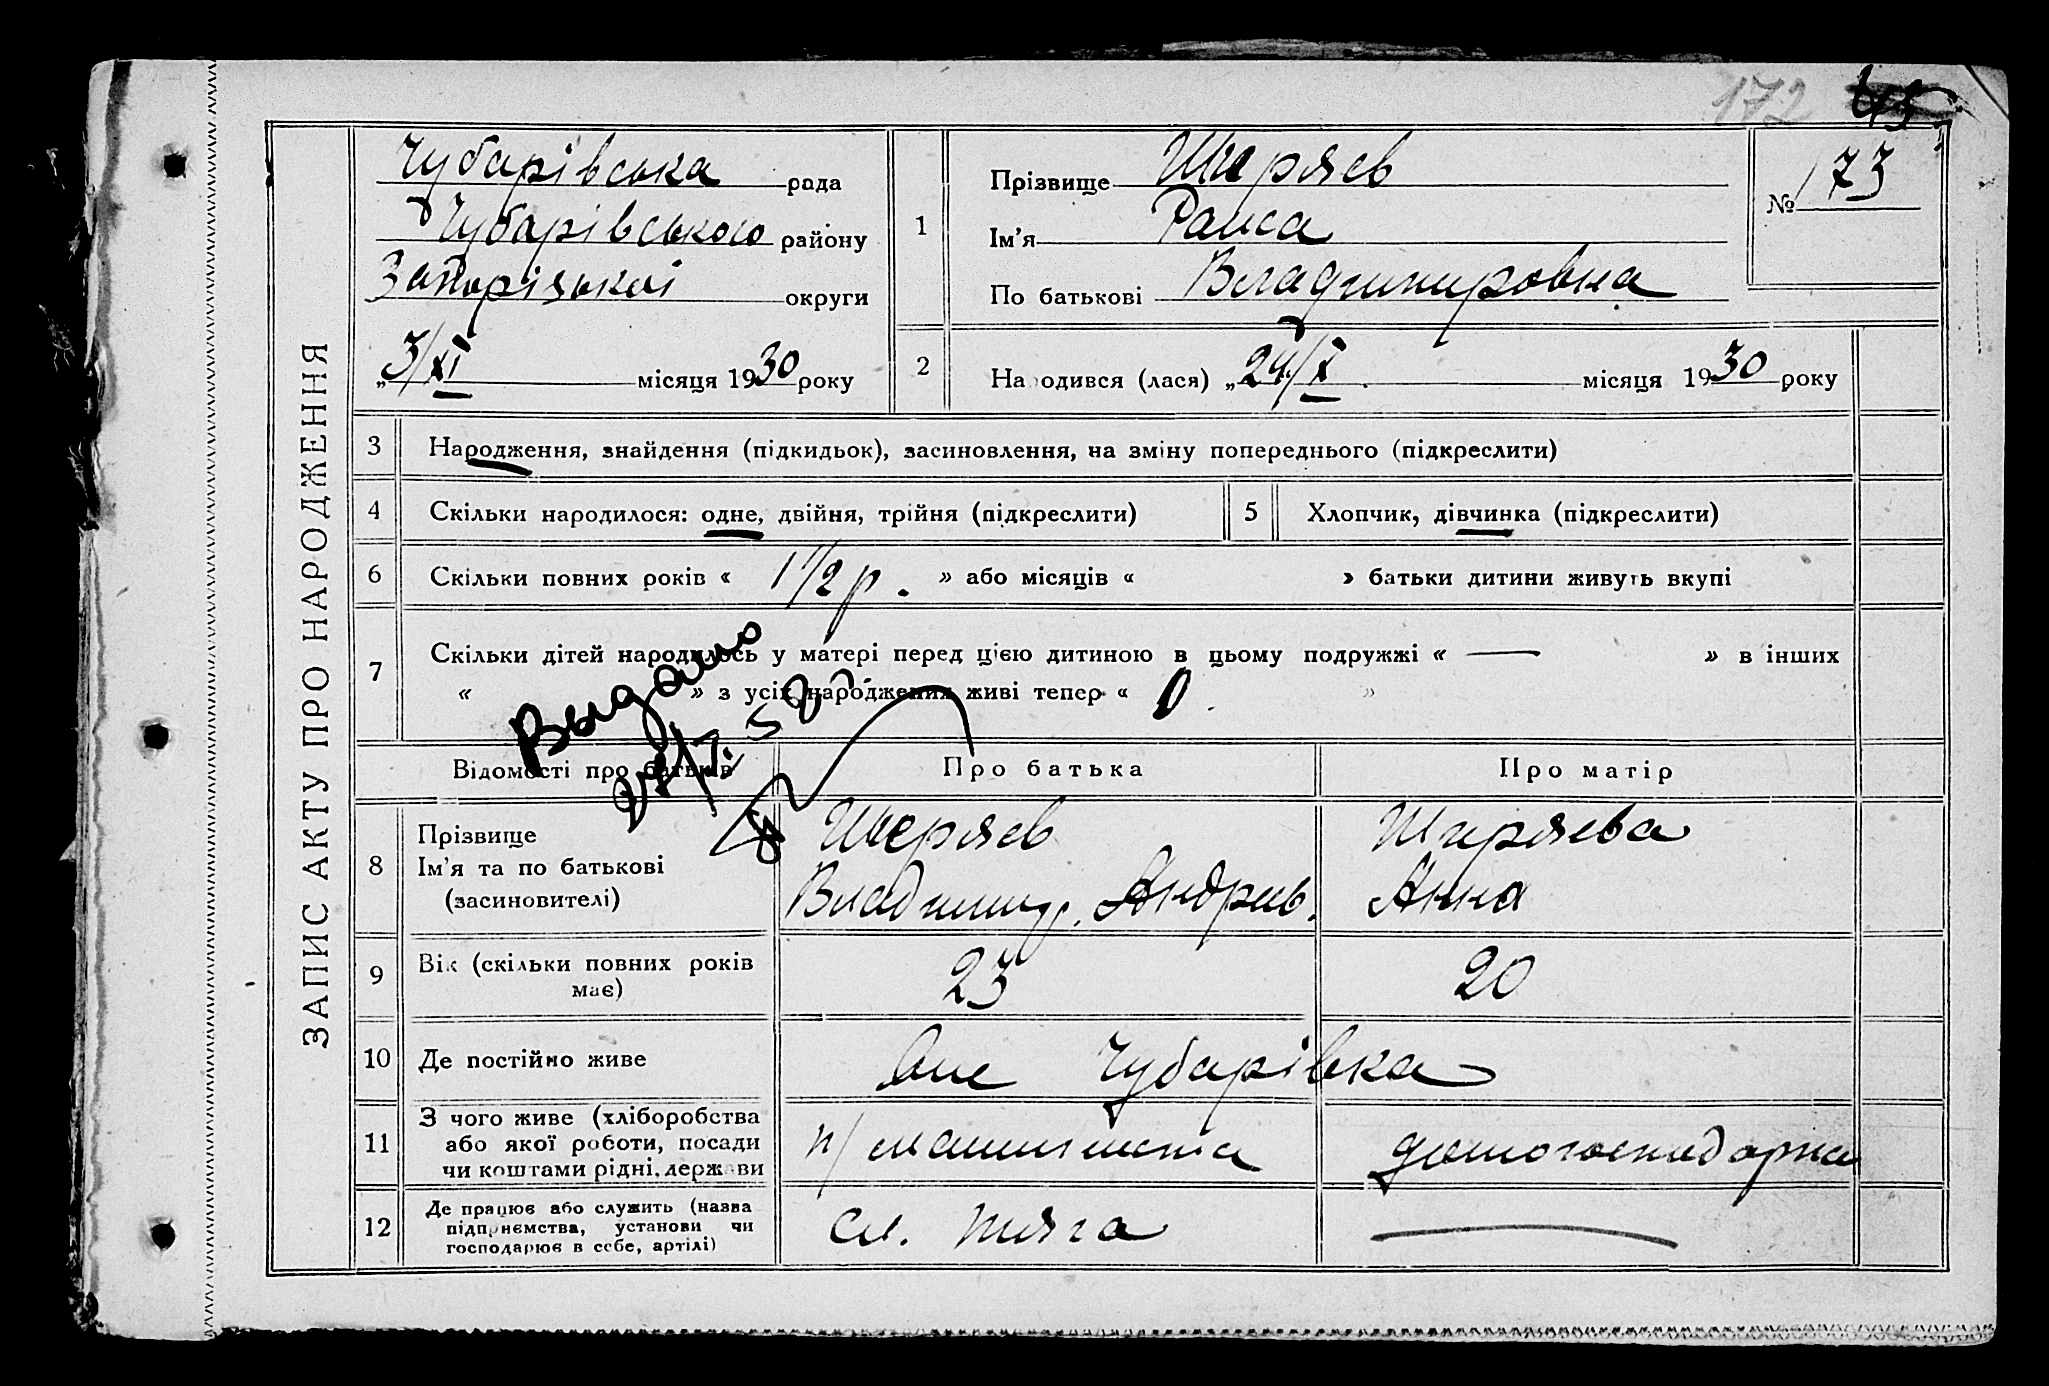 172
173
ЗАПИС АКТУ ПРО НАРОДЖЕННЯ
Чубарівська рада
Чубарівського району
Запорізької округи
„3/XI місяця 1930 року
1
Прізвище Ширяев
Ім'я Раиса
По батькові Владимировна
№ 173
2
Народився (лася) „24/X місяця 1930 року
3 Народження, знайдення (підкидьок), засиновлення, на зміну попереднього (підкреслити)
4 Скільки народилося: одне, двійня, трійня (підкреслити)
5 Хлопчик, дівчинка (підкреслити)
6 Скільки повних років « 1 1/2 р. » або місяців « » батьки дитини живуть вкупі
7 Скільки дітей народилось у матері перед цією дитиною в цьому подружжі « — » в інших
« » з усіх народжених живі тепер « 0 »
Выдано
Відомості про батьків
Про батька
Про матір
8 Прізвище
Ім'я та по батькові
(засиновителі)
Ширяев
Владимир. Андрив.
Ширяева
Анна
9 Вік (скільки повних років
має)
23
20
10 Де постійно живе
Чубарівка
11 З чого живе (хліборобства
або якої роботи, посади
чи коштами рідні, держави
п/машиниста
домогосподарка
12 Де працює або служить (назва
підприємства, установи чи
господарює в себе, артілі)
сл. тяга